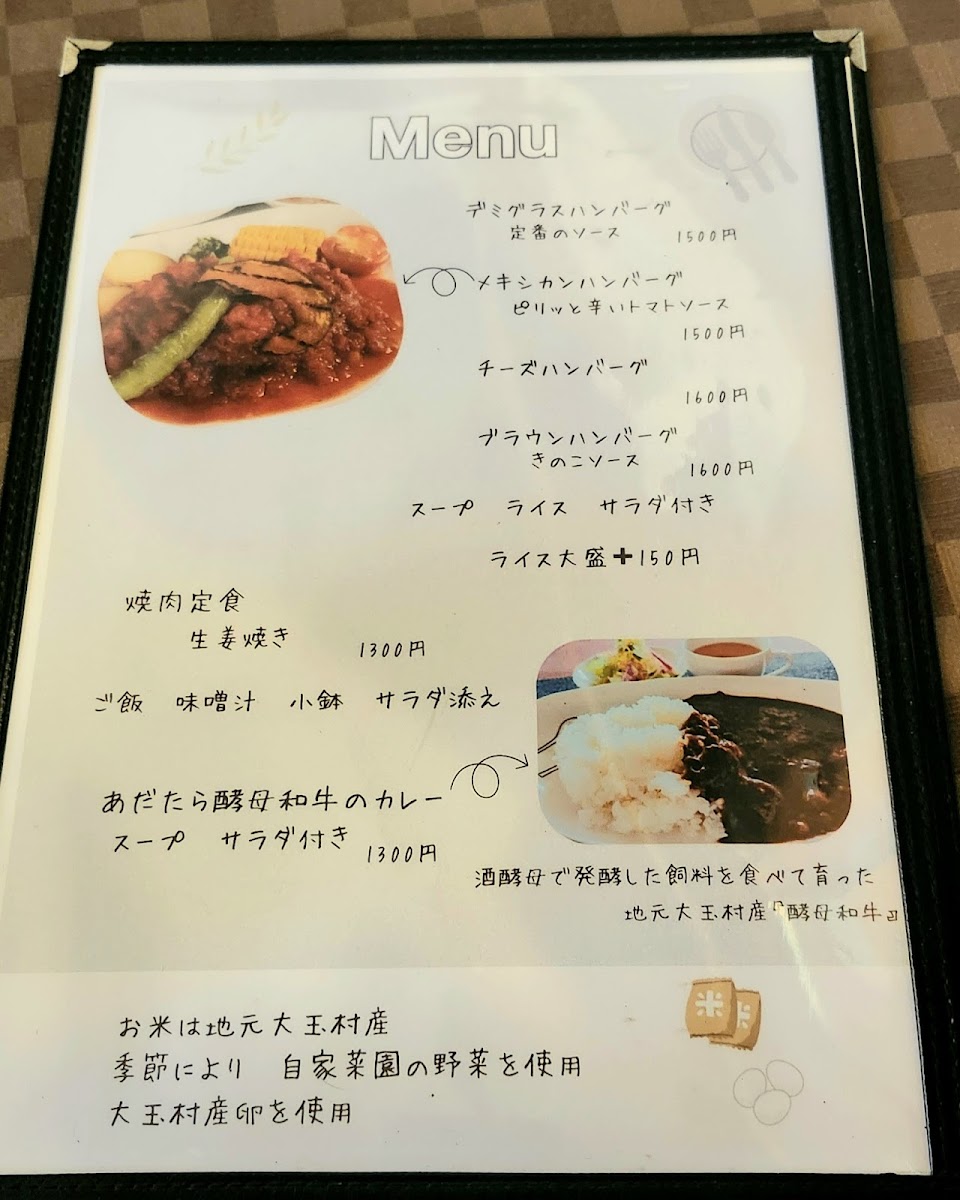 Menu
デミグラスハンバーグ
定番のソース 1500円
メキシカンハンバーグ
ピリッと辛いトマトソース
1500円
チーズハンバーグ
1600円
ブラウンハンバーグ
きのこソース 1600円
スープ ライス サラダ付き
ライス大盛➕150円
焼肉定食
生姜焼き 1300円
ご飯 味噌汁 小鉢 サラダ添え
あだたら酵母和牛のカレー
スープ サラダ付き 1300円
酒酵母で発酵した飼料を食べて育った
地元大玉村産『酵母和牛』
米 米
お米は地元大玉村産
季節により 自家菜園の野菜を使用
大玉村産卵を使用